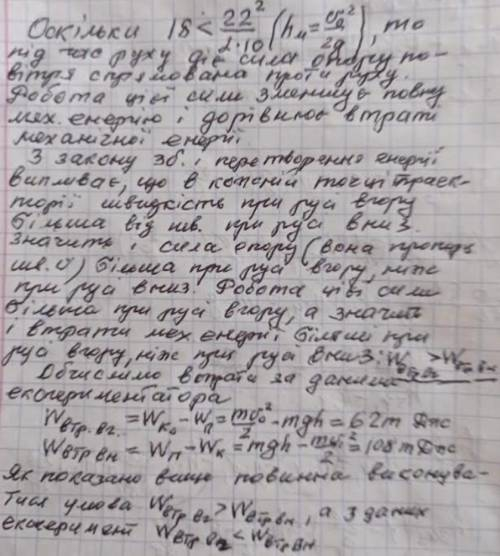 Оскільки 18 < 22²/2·10 (hм = v₀²/2g), то
під час руху діє сила опору по-
вітря спрямована проти руху.
Робота цієї сили зменшує повну
мех. енергію і дорівнює втраті
механічної енергії.
З закону зб. і перетворення енергії
випливає, що в кожній точці траєк-
торії швидкість при русі вгору
більша від шв. при русі вниз.
Значить і сила опору (вона пропорц
шв. v) більша при русі вгору, ніж
при русі вниз. Робота цієї сили
більша при русі вгору, а значить
і втрати мех. енергії більші при
русі вгору, ніж при русі вниз: Wвтр.вг > Wвтр.вн
Обчислимо втрати за даними
експериментатора
Wвтр.вг. = Wк₀ - Wп = mv₀²/2 - mgh = 62m Дж
Wвтр вн = Wп - Wк = mgh - mv₁²/2 = 108m Дж
Як показано вище повинна виконува-
тися умова Wвтр вг > Wвтр вн, а з даних
експеримент Wвтр вг < Wвтр вн.